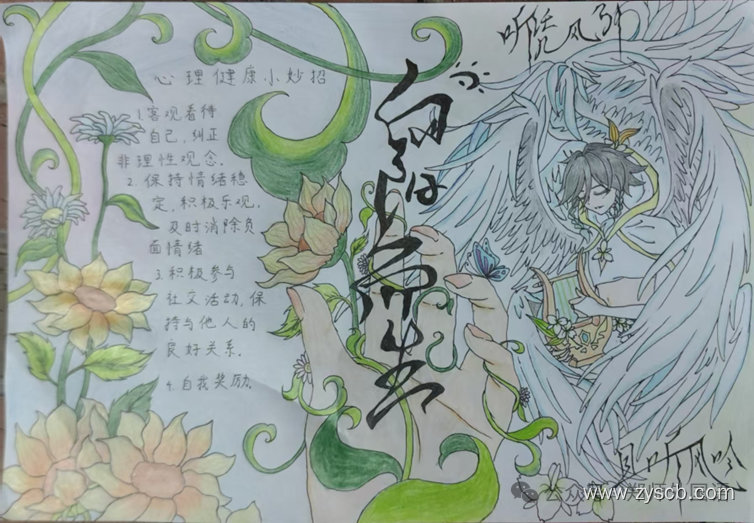 心理健康小妙招
1.客观看待
自己,纠正
非理性观念.
2.保持情绪稳
定,积极乐观,
及时消除负
面情绪
3.积极参与
社交活动,保
持与他人的
良好关系.
4.自我奖励.
向阳而生
且听风吟
www.zyscb.com